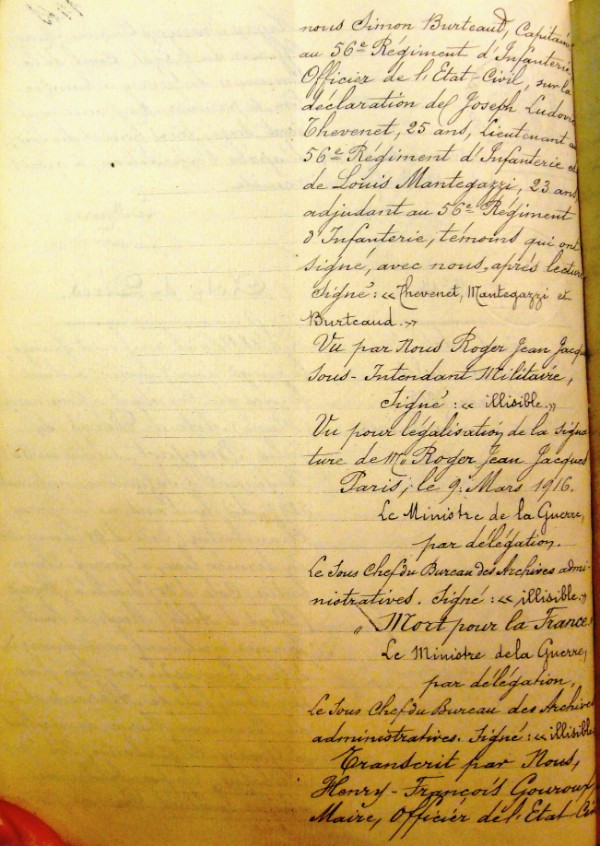 nous Simon Burteaud, Capitaine
au 56e Régiment d'Infanterie
Officier de l'Etat-Civil, sur la
déclaration de Joseph Ludovic
Thevenet, 25 ans, Lieutenant au
56e Régiment d'Infanterie et
de Louis Mantegazzi, 23 ans,
adjudant au 56e Régiment
d'Infanterie, témoins qui ont
signé, avec nous, après lecture
Signé: « Thevenet, Mantegazzi et
Burteaud. »
Vu par Nous Roger Jean Jacques
Sous-Intendant Militaire,
Signé : « illisible. »
Vu pour légalisation de la signa
ture de Mr Roger Jean Jacques
Paris, le 9 Mars 1916.
Le Ministre de la Guerre,
par délégation.
Le Sous Chef du Bureau des Archives admi-
nistratives. Signé : « illisible. »
"Mort pour la France"
Le Ministre de la Guerre,
par délégation,
Le Sous Chef du Bureau des Archives
administratives. Signé : « illisible
Transcrit par Nous,
Henry-François Gouroux,
Maire, Officier de l'Etat Civil